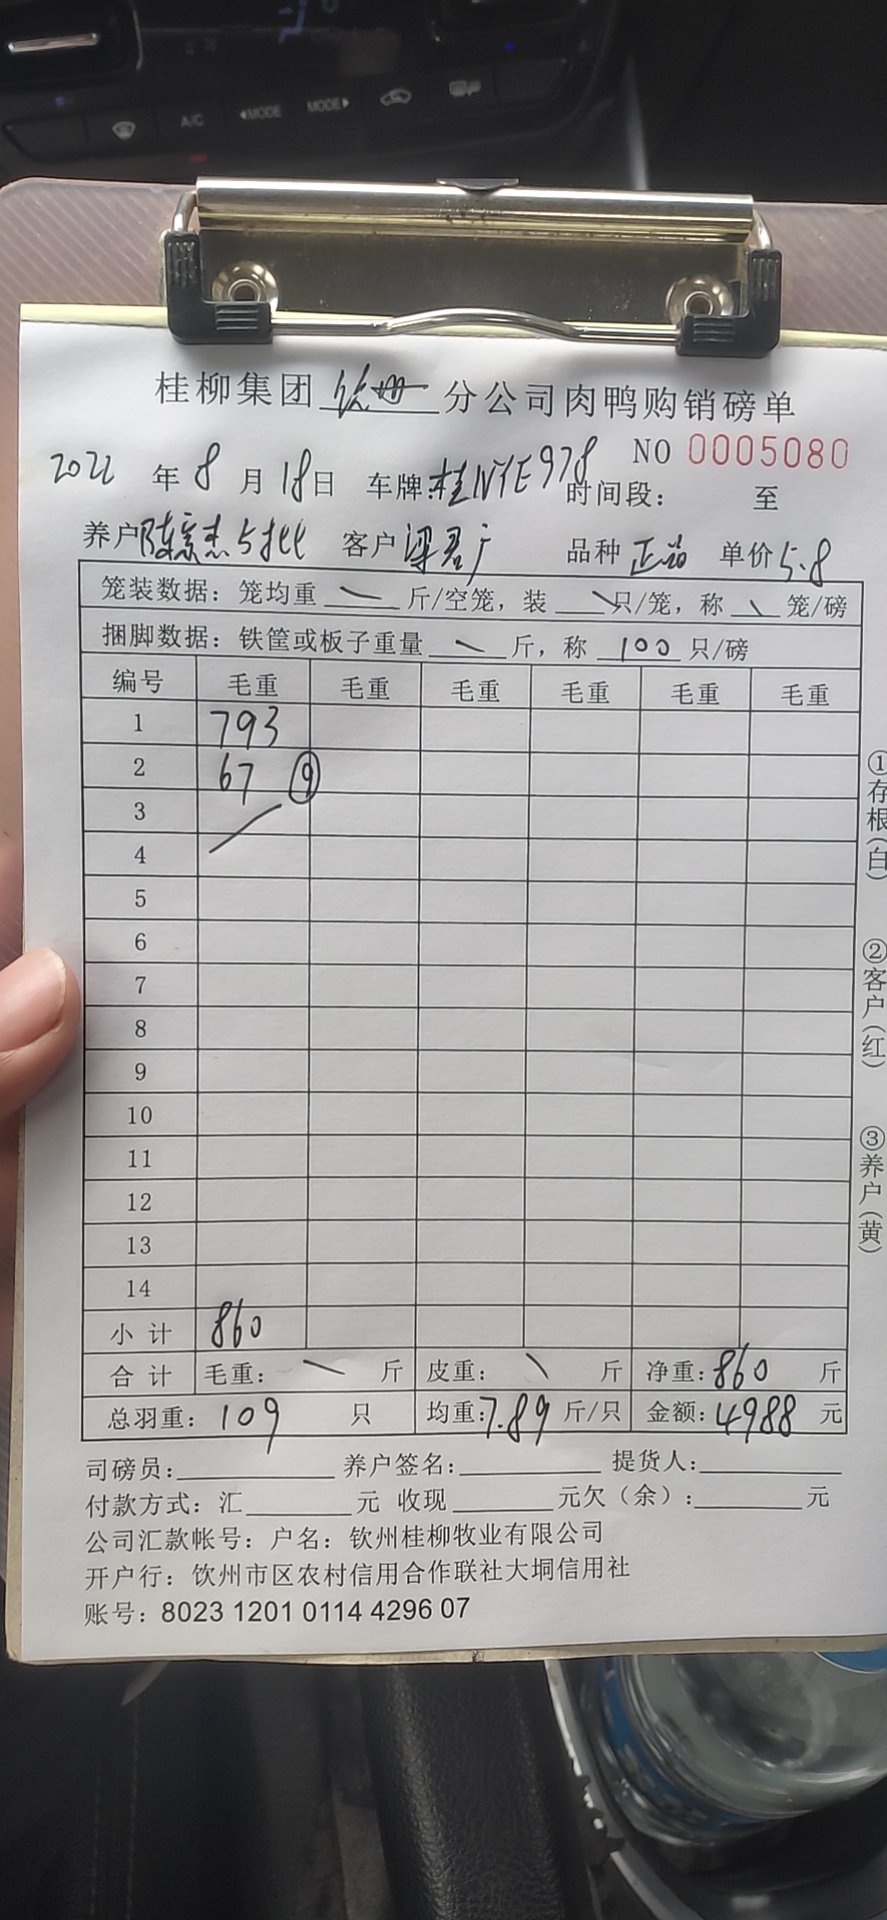 A/C
◀MODE
MODE▶
桂柳集团 钦州 分公司肉鸭购销磅单
NO 0005080
2022 年 8 月 18 日 车牌:桂NYE978 时间段: 至
养户 陈宗杰5批 客户 梁君广 品种 正品 单价 5.8
笼装数据:笼均重 \ 斤/空笼,装 \ 只/笼,称 \ 笼/磅
捆脚数据:铁筐或板子重量 \ 斤,称 100 只/磅
编号 毛重 毛重 毛重 毛重 毛重 毛重
1 793
2 67 ⑨
3
4
5
6
7
8
9
10
11
12
13
14
小 计 860
合 计 毛重: \ 斤 皮重: \ 斤 净重: 860 斤
总羽重: 109 只 均重: 7.89 斤/只 金额: 4988 元
司磅员: 养户签名: 提货人:
付款方式:汇 元 收现 元欠(余): 元
公司汇款帐号:户名:钦州桂柳牧业有限公司
开户行:饮州市区农村信用合作联社大垌信用社
账号:8023 1201 0114 4296 07
①存根(白)
②客户(红)
③养户(黄)